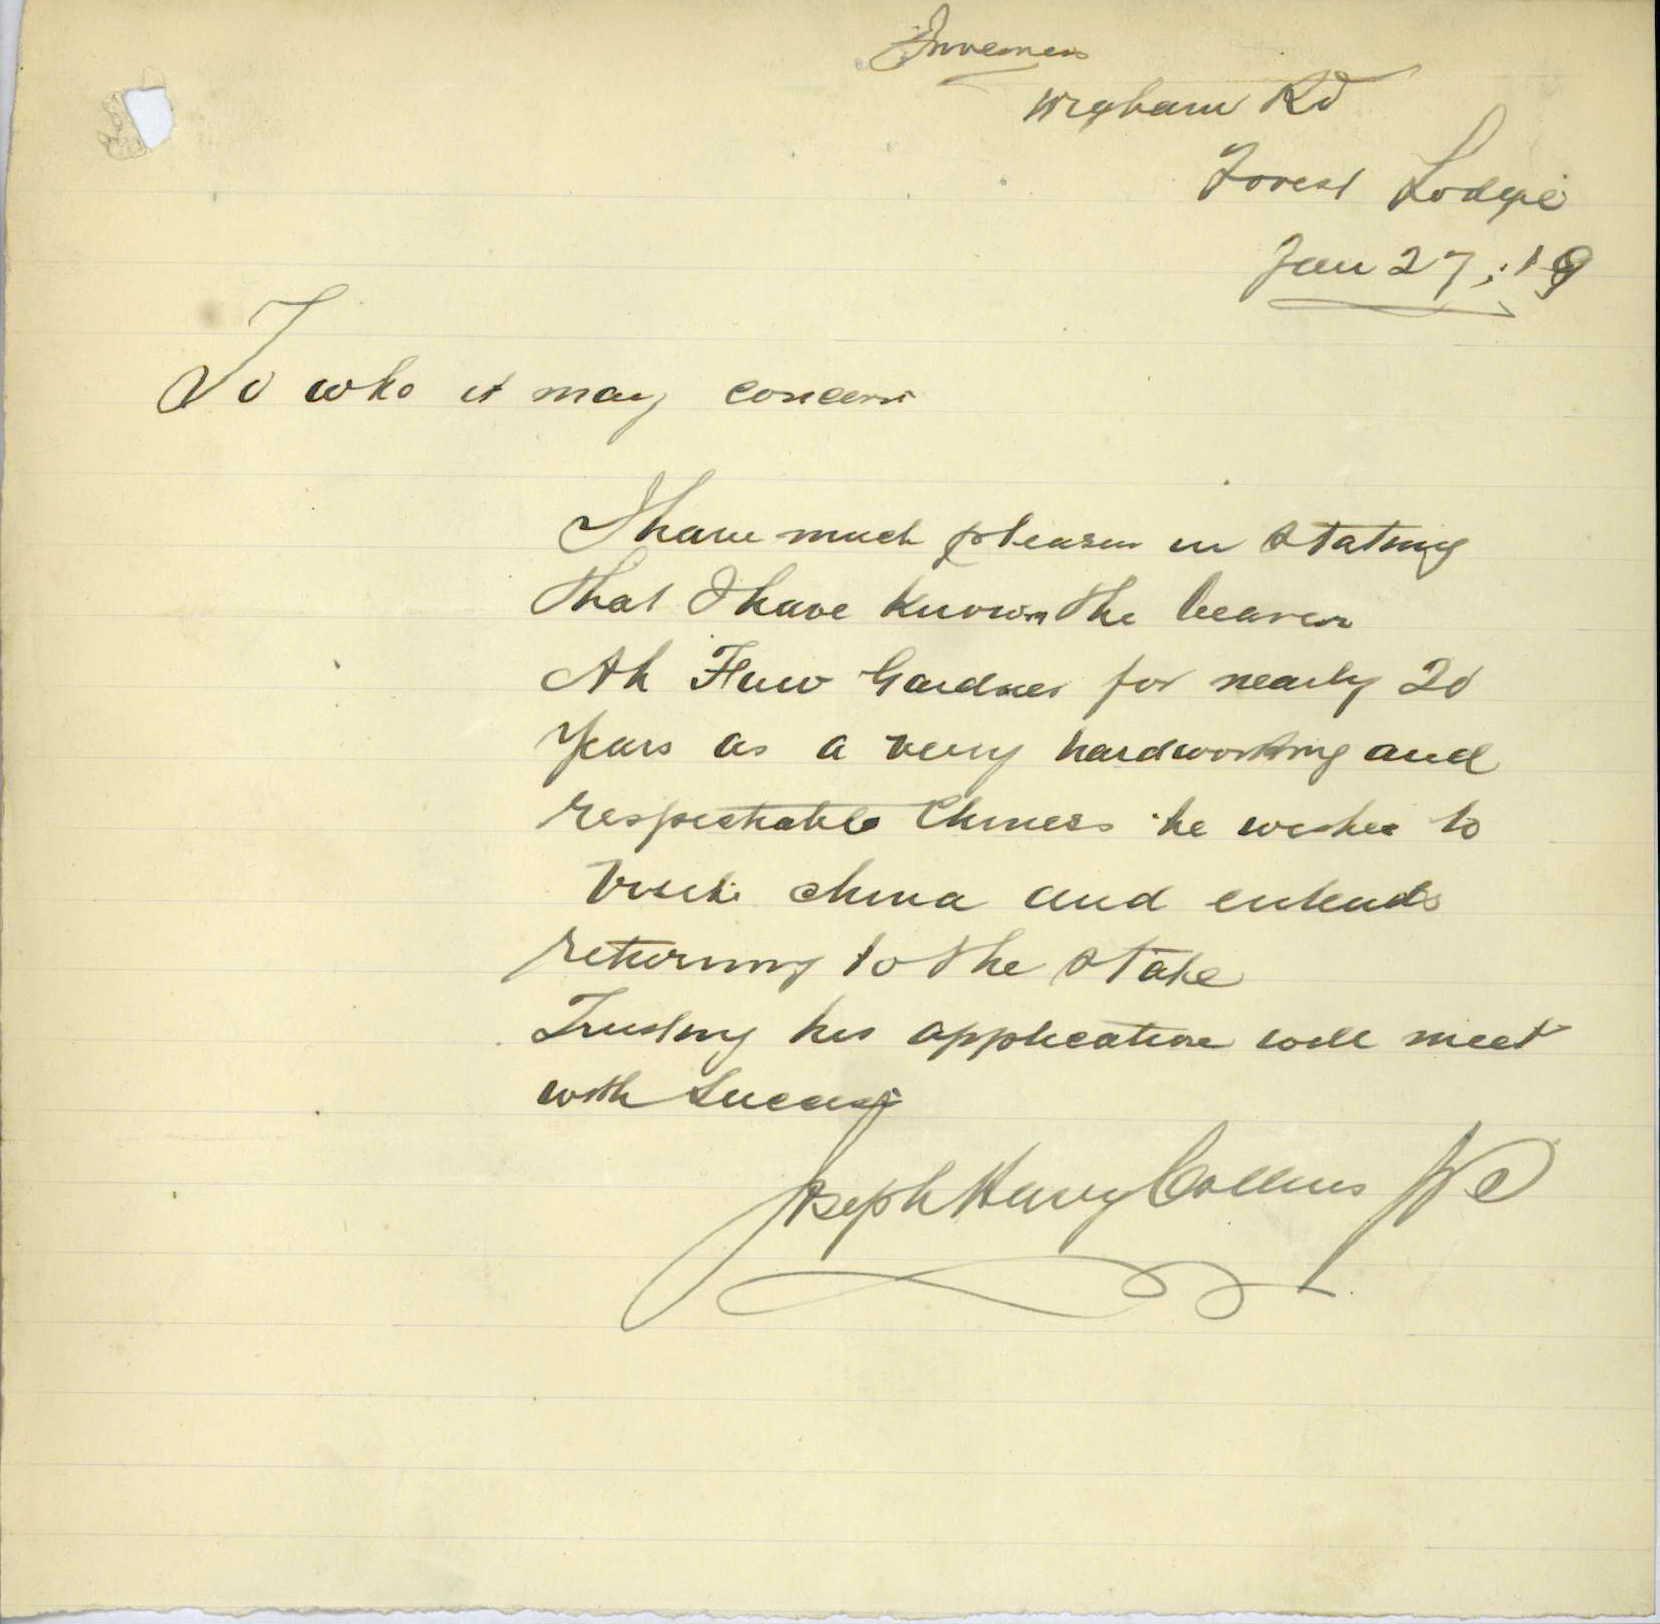 Inverness
Wigham Rd
Forest Lodge
Jan 27, 19
To who it may concern
I have much pleasure in stating
that I have known the bearer
Ah Fluw Gardner for nearly 20
years as a very hardworking and
respectable Chiness he wishes to
visit china and entends
returning to the state
Trusting his application will meet
with success
Joseph Harry Collins